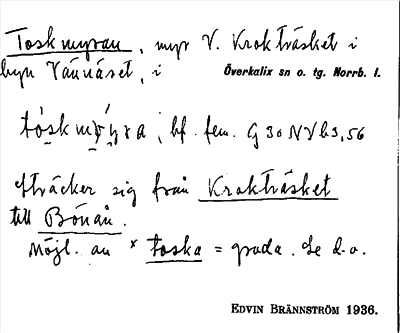 Toskmyran, myr V. Kroktråsket i
byn Vännäset, i Överkalix sn o. tg. Norrb. l.
bf. fem. G 30 NV b3,56
sträcker sig från Kroktråsket
till Bönån.
Möjl. av * toska = groda. Se d.o.
EDVIN BRÄNNSTRÖM 1936.